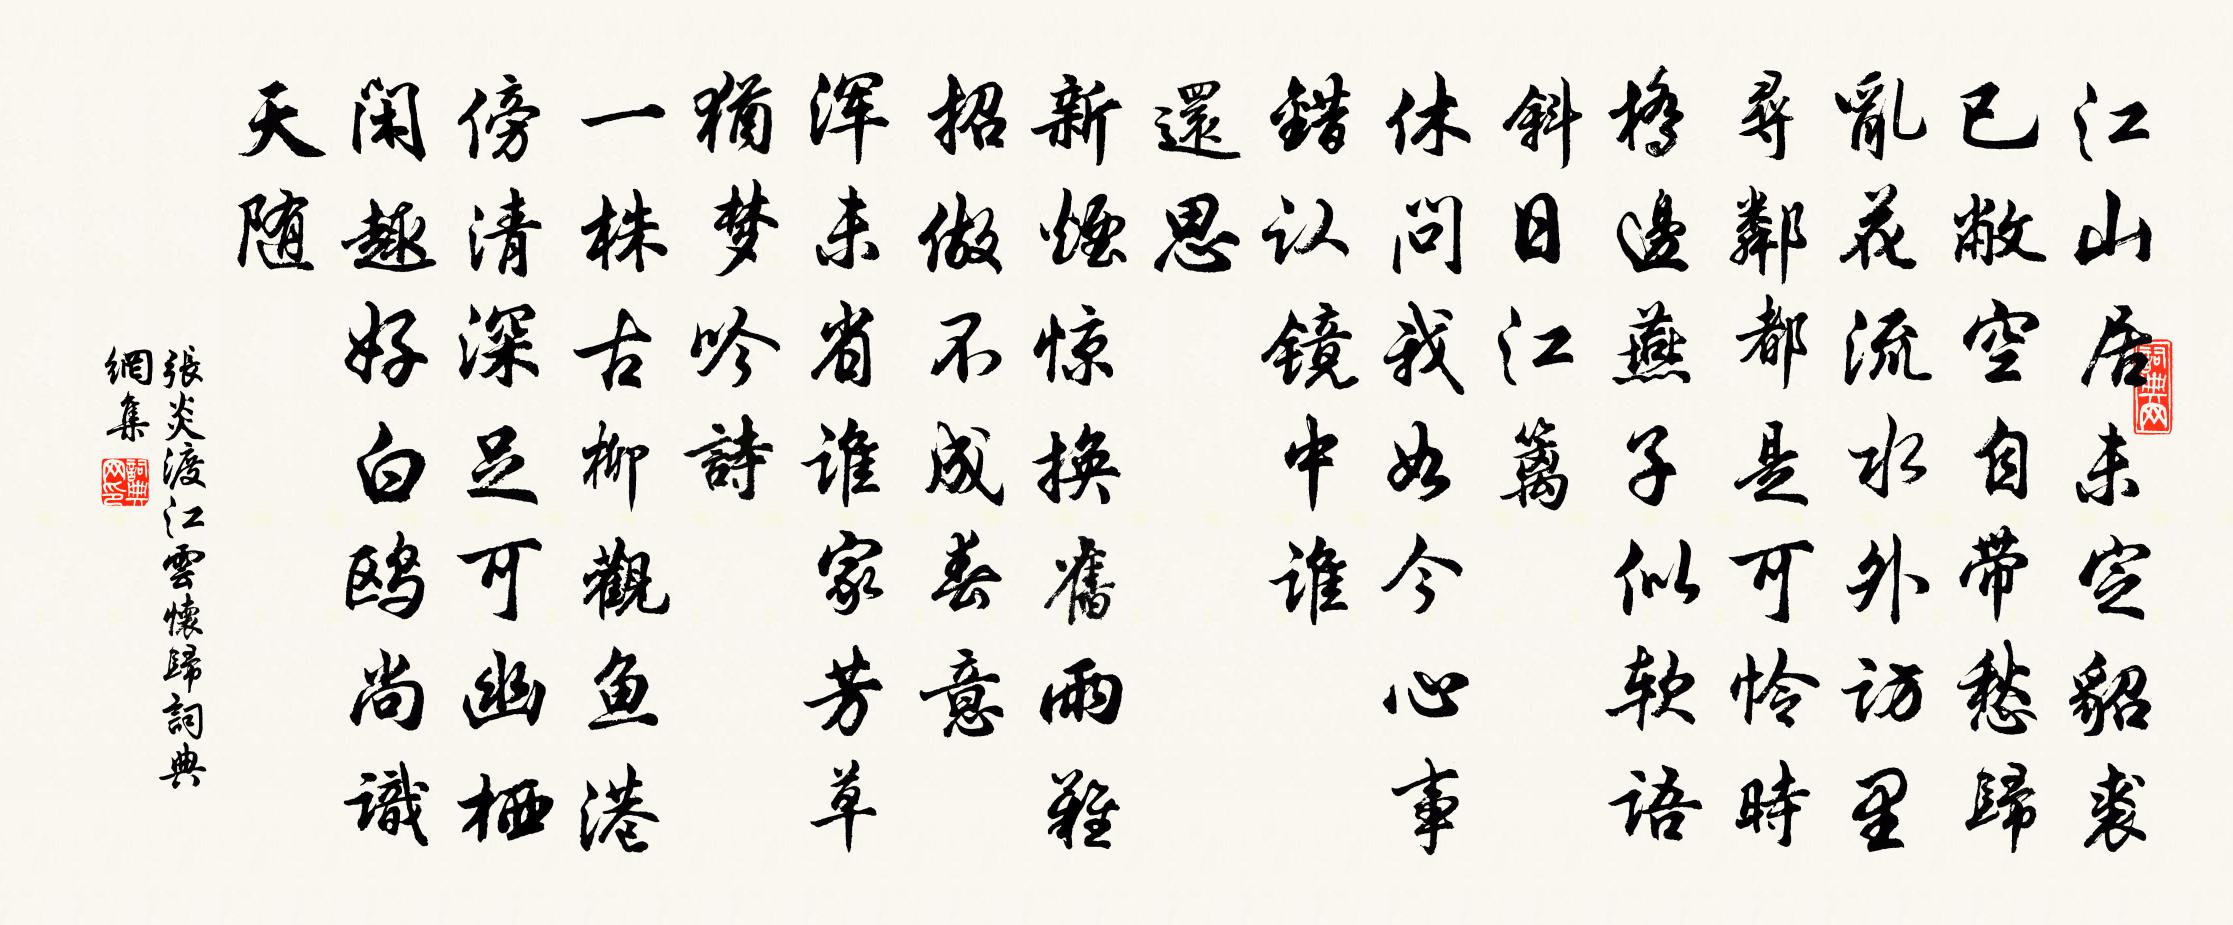 江山居未定貂裘
已敝空自带愁歸
亂花流水外访里
尋鄰都是可怜時
橋邊燕子似软语
斜日江籬
休问我如今心事
错认镜中谁
還思
新煙惊换舊雨難
招做不成春意
浑未省谁家芳草
猶梦吟詩
一株古柳觀鱼港
傍清深足可幽栖
闲趣好白鸥尚識
天随
張炎渡江雲懷歸詞典
網集
詞典网
詞典网印